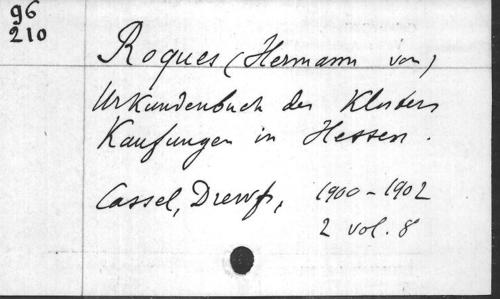 96
210
Roques (Hermann von)
Urkundenbuch des Klosters
Kaufungen in Hessen.
Cassel, Drewfs, 1900-1902
2 vol. 8